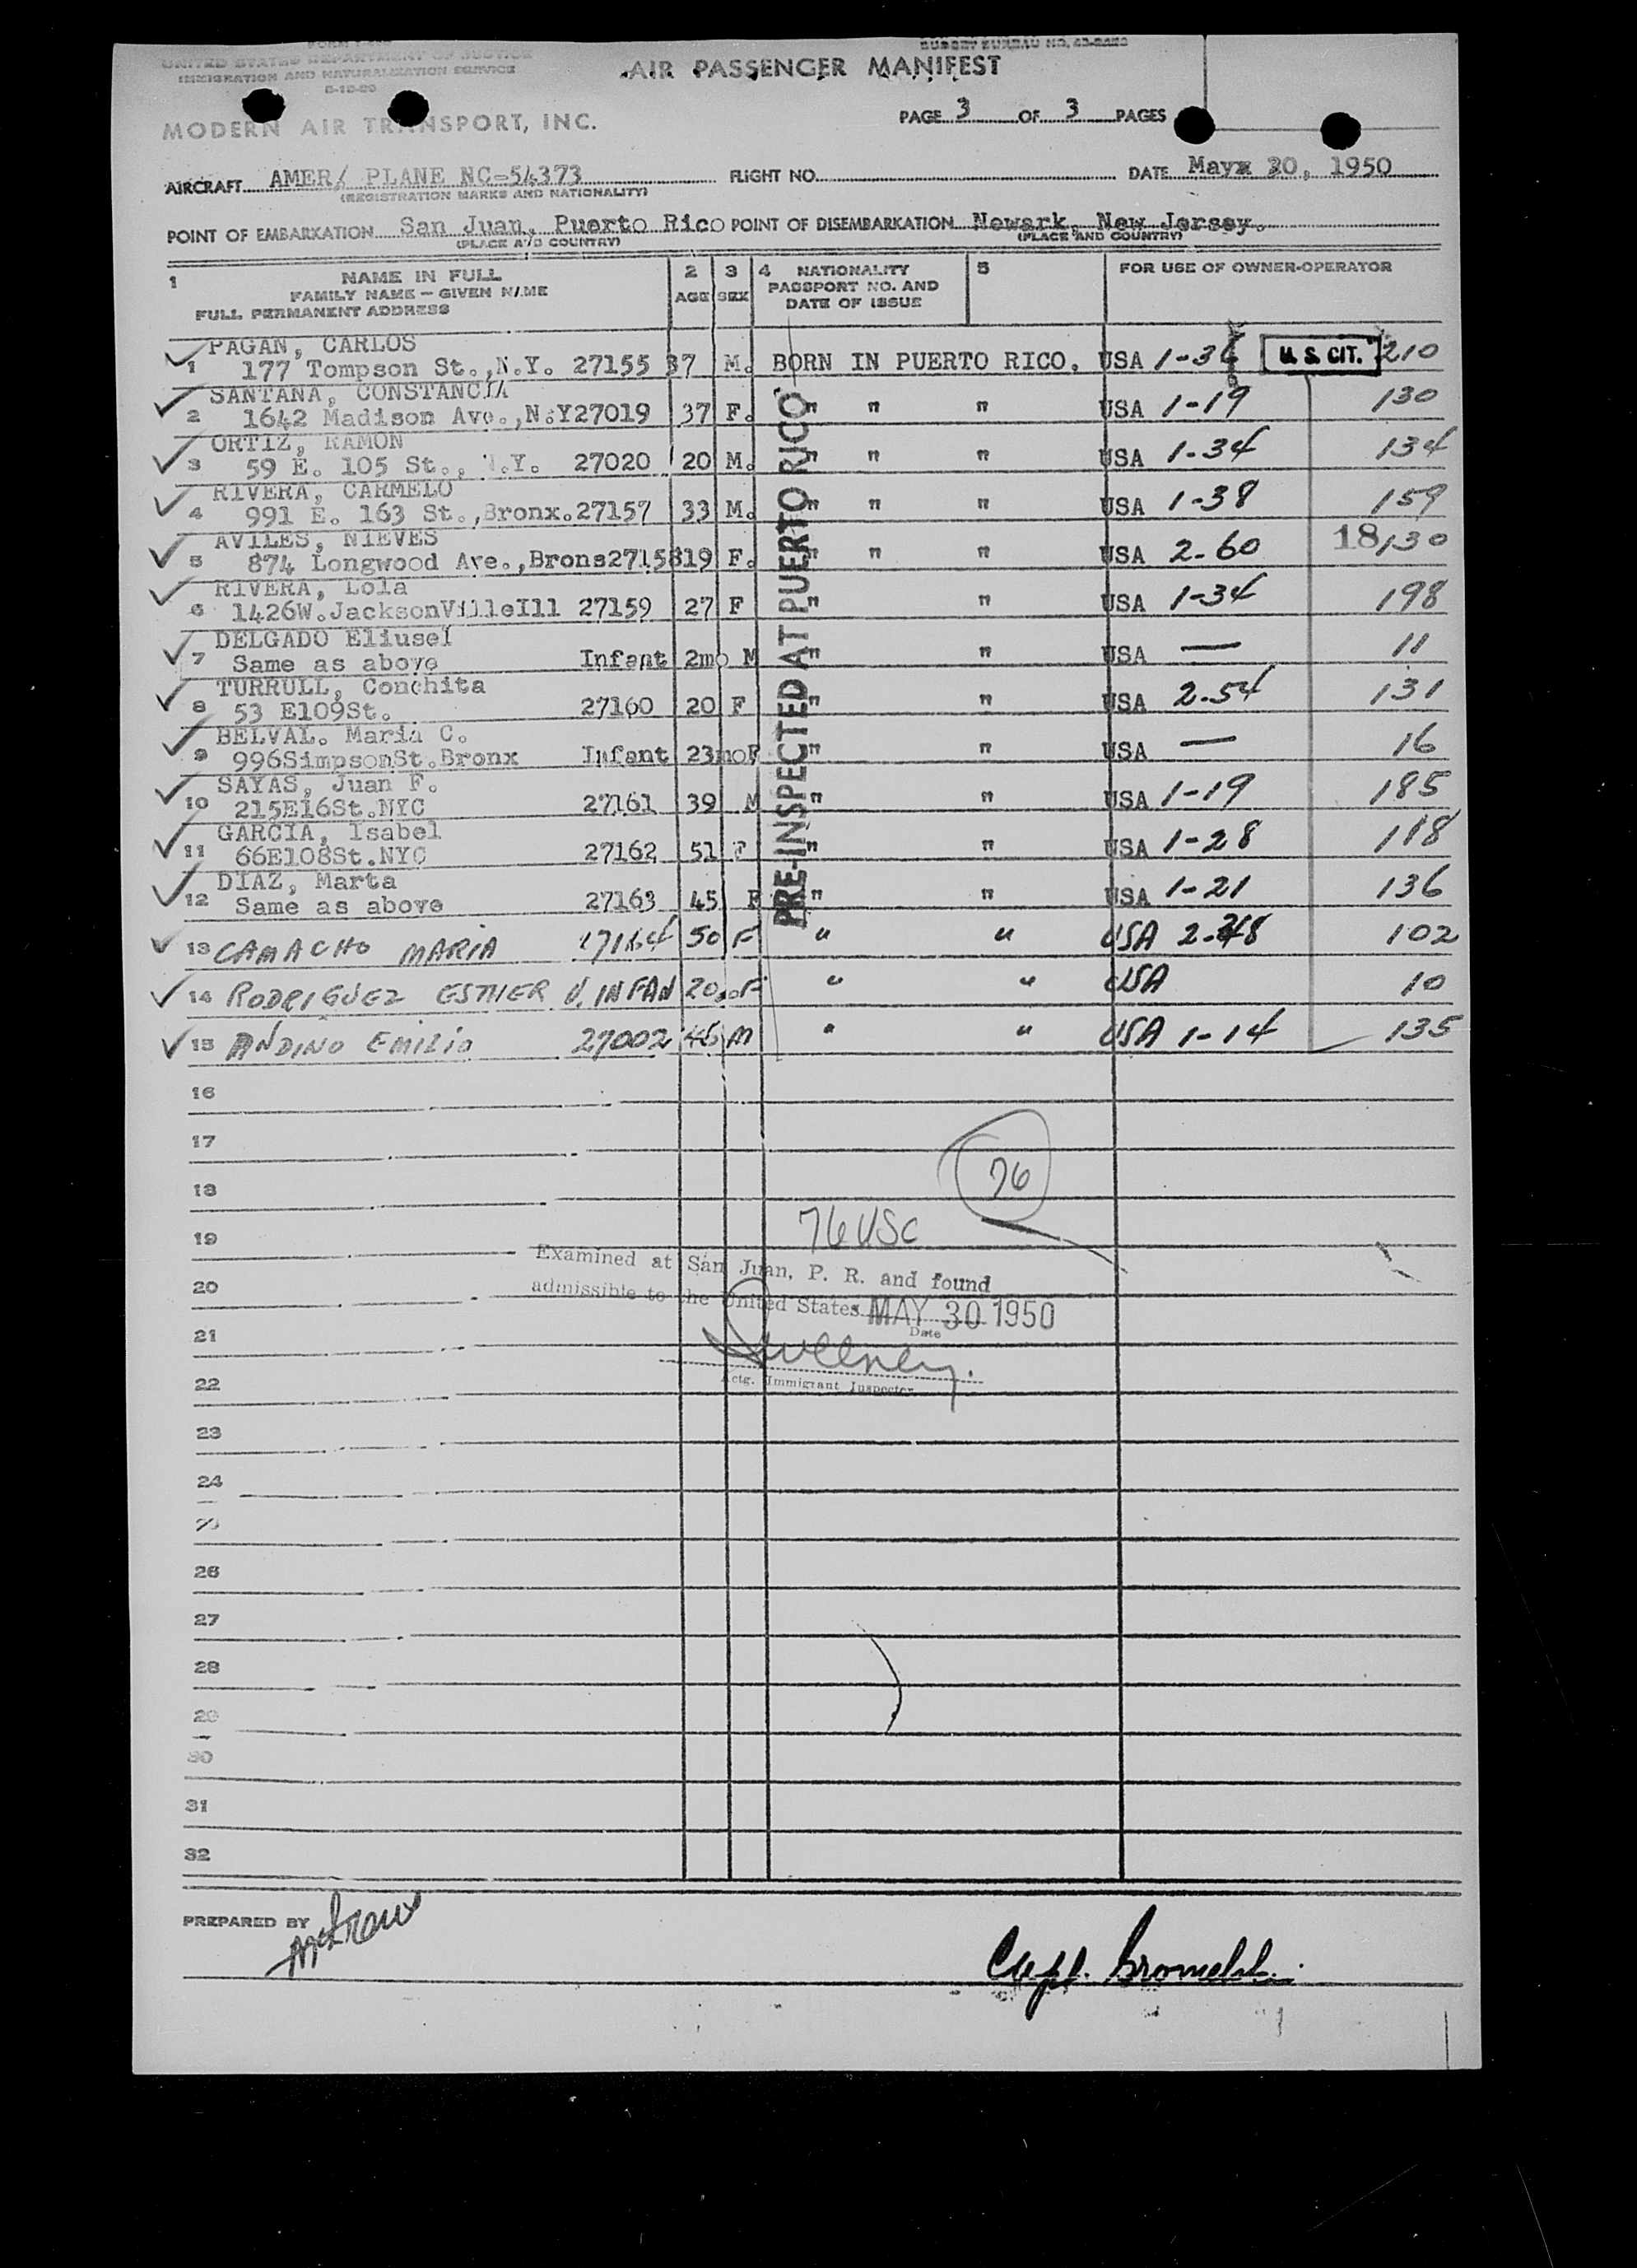 UNITED STATES DEPARTMENT OF JUSTICE
IMMIGRATION AND NATURALIZATION SERVICE
BUDGET BUREAU NO.
AIR PASSENGER MANIFEST
MODERN AIR TRANSPORT, INC.
PAGE 3 OF 3 PAGES
AIRCRAFT AMER/ PLANE NC-54373 FLIGHT NO. DATE Mayx 30, 1950
(REGISTRATION MARKS AND NATIONALITY)
POINT OF EMBARKATION San Juan, Puerto Rico POINT OF DISEMBARKATION Newark, New Jersey.
(PLACE AND COUNTRY) (PLACE AND COUNTRY)
1 NAME IN FULL 2 3 4 NATIONALITY 5 FOR USE OF OWNER-OPERATOR
FAMILY NAME — GIVEN NAME AGE SEX PASSPORT NO. AND
FULL PERMANENT ADDRESS DATE OF ISSUE
PAGAN, CARLOS
1 177 Tompson St.,N.Y. 27155 37 M. BORN IN PUERTO RICO, USA U. S. CIT. 210
SANTANA, CONSTANCIA
2 1642 Madison Ave.,N.Y27019 37 F. " " " USA 1-19 130
ORTIZ, RAMON
3 59 E. 105 St., .Y. 27020 20 M. " " " USA 1-34 134
RIVERA, CARMELO
4 991 E. 163 St.,Bronx.27157 33 M. " " " USA 1-38 159
AVILES, NIEVES
5 874 Longwood Ave.,Brons27158 19 F. " " " USA 2-60 18,130
RIVERA, Lola
6 1426W.JacksonVilleIll 27159 27 F " " USA 1-34 198
DELGADO Eliusel
7 Same as above Infant 2mo M " " USA — 11
TURRULL, Conchita
8 53 E109St. 27160 20 F " " USA 2-54 131
BELVAL. Maria C.
9 996SimpsonSt.Bronx Infant 23moF " " USA — 16
SAYAS, Juan F.
10 215E16St.NYC 27161 39 M " " USA 1-19 185
GARCIA, Isabel
11 66E108St.NYC 27162 51 F " " USA 1-28 118
DIAZ, Marta
12 Same as above 27163 45 F " " USA 1-21 136
13 CAMACHO MARIA 27164 50 F " " USA 102
14 RODRIGUEZ ESTHER V. INFAN 20mo F " " USA 10
15 ANDINO EMILIO 27002 46 M " " USA 1-14 135
PRE-INSPECTED AT PUERTO RICO
16
17
76
18
76 USC
19
Examined at San Juan, P. R. and found
20
admissible to the United States MAY 30 1950
Date
21
Actg. Immigrant Inspector
22
23
24
25
26
27
28
29
30
31
32
PREPARED BY
Capt.